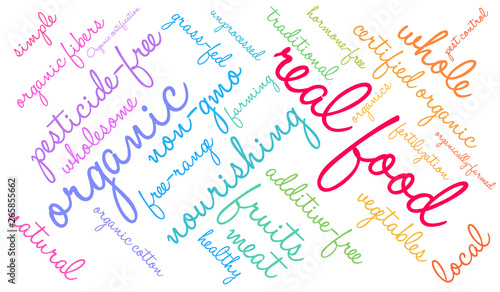 simple
organic fibers
Organic certification
pesticide-free
wholesome
organic
natural
organic cotton
grass-fed
non-gmo
free-range
unprocessed
farming
nourishing
healthy
meat
fruits
traditional
hormone-free
real food
organics
additive-free
certified organic
whole
pest control
fertilization
organically farmed
vegetables
local
Adobe Stock | #265855662